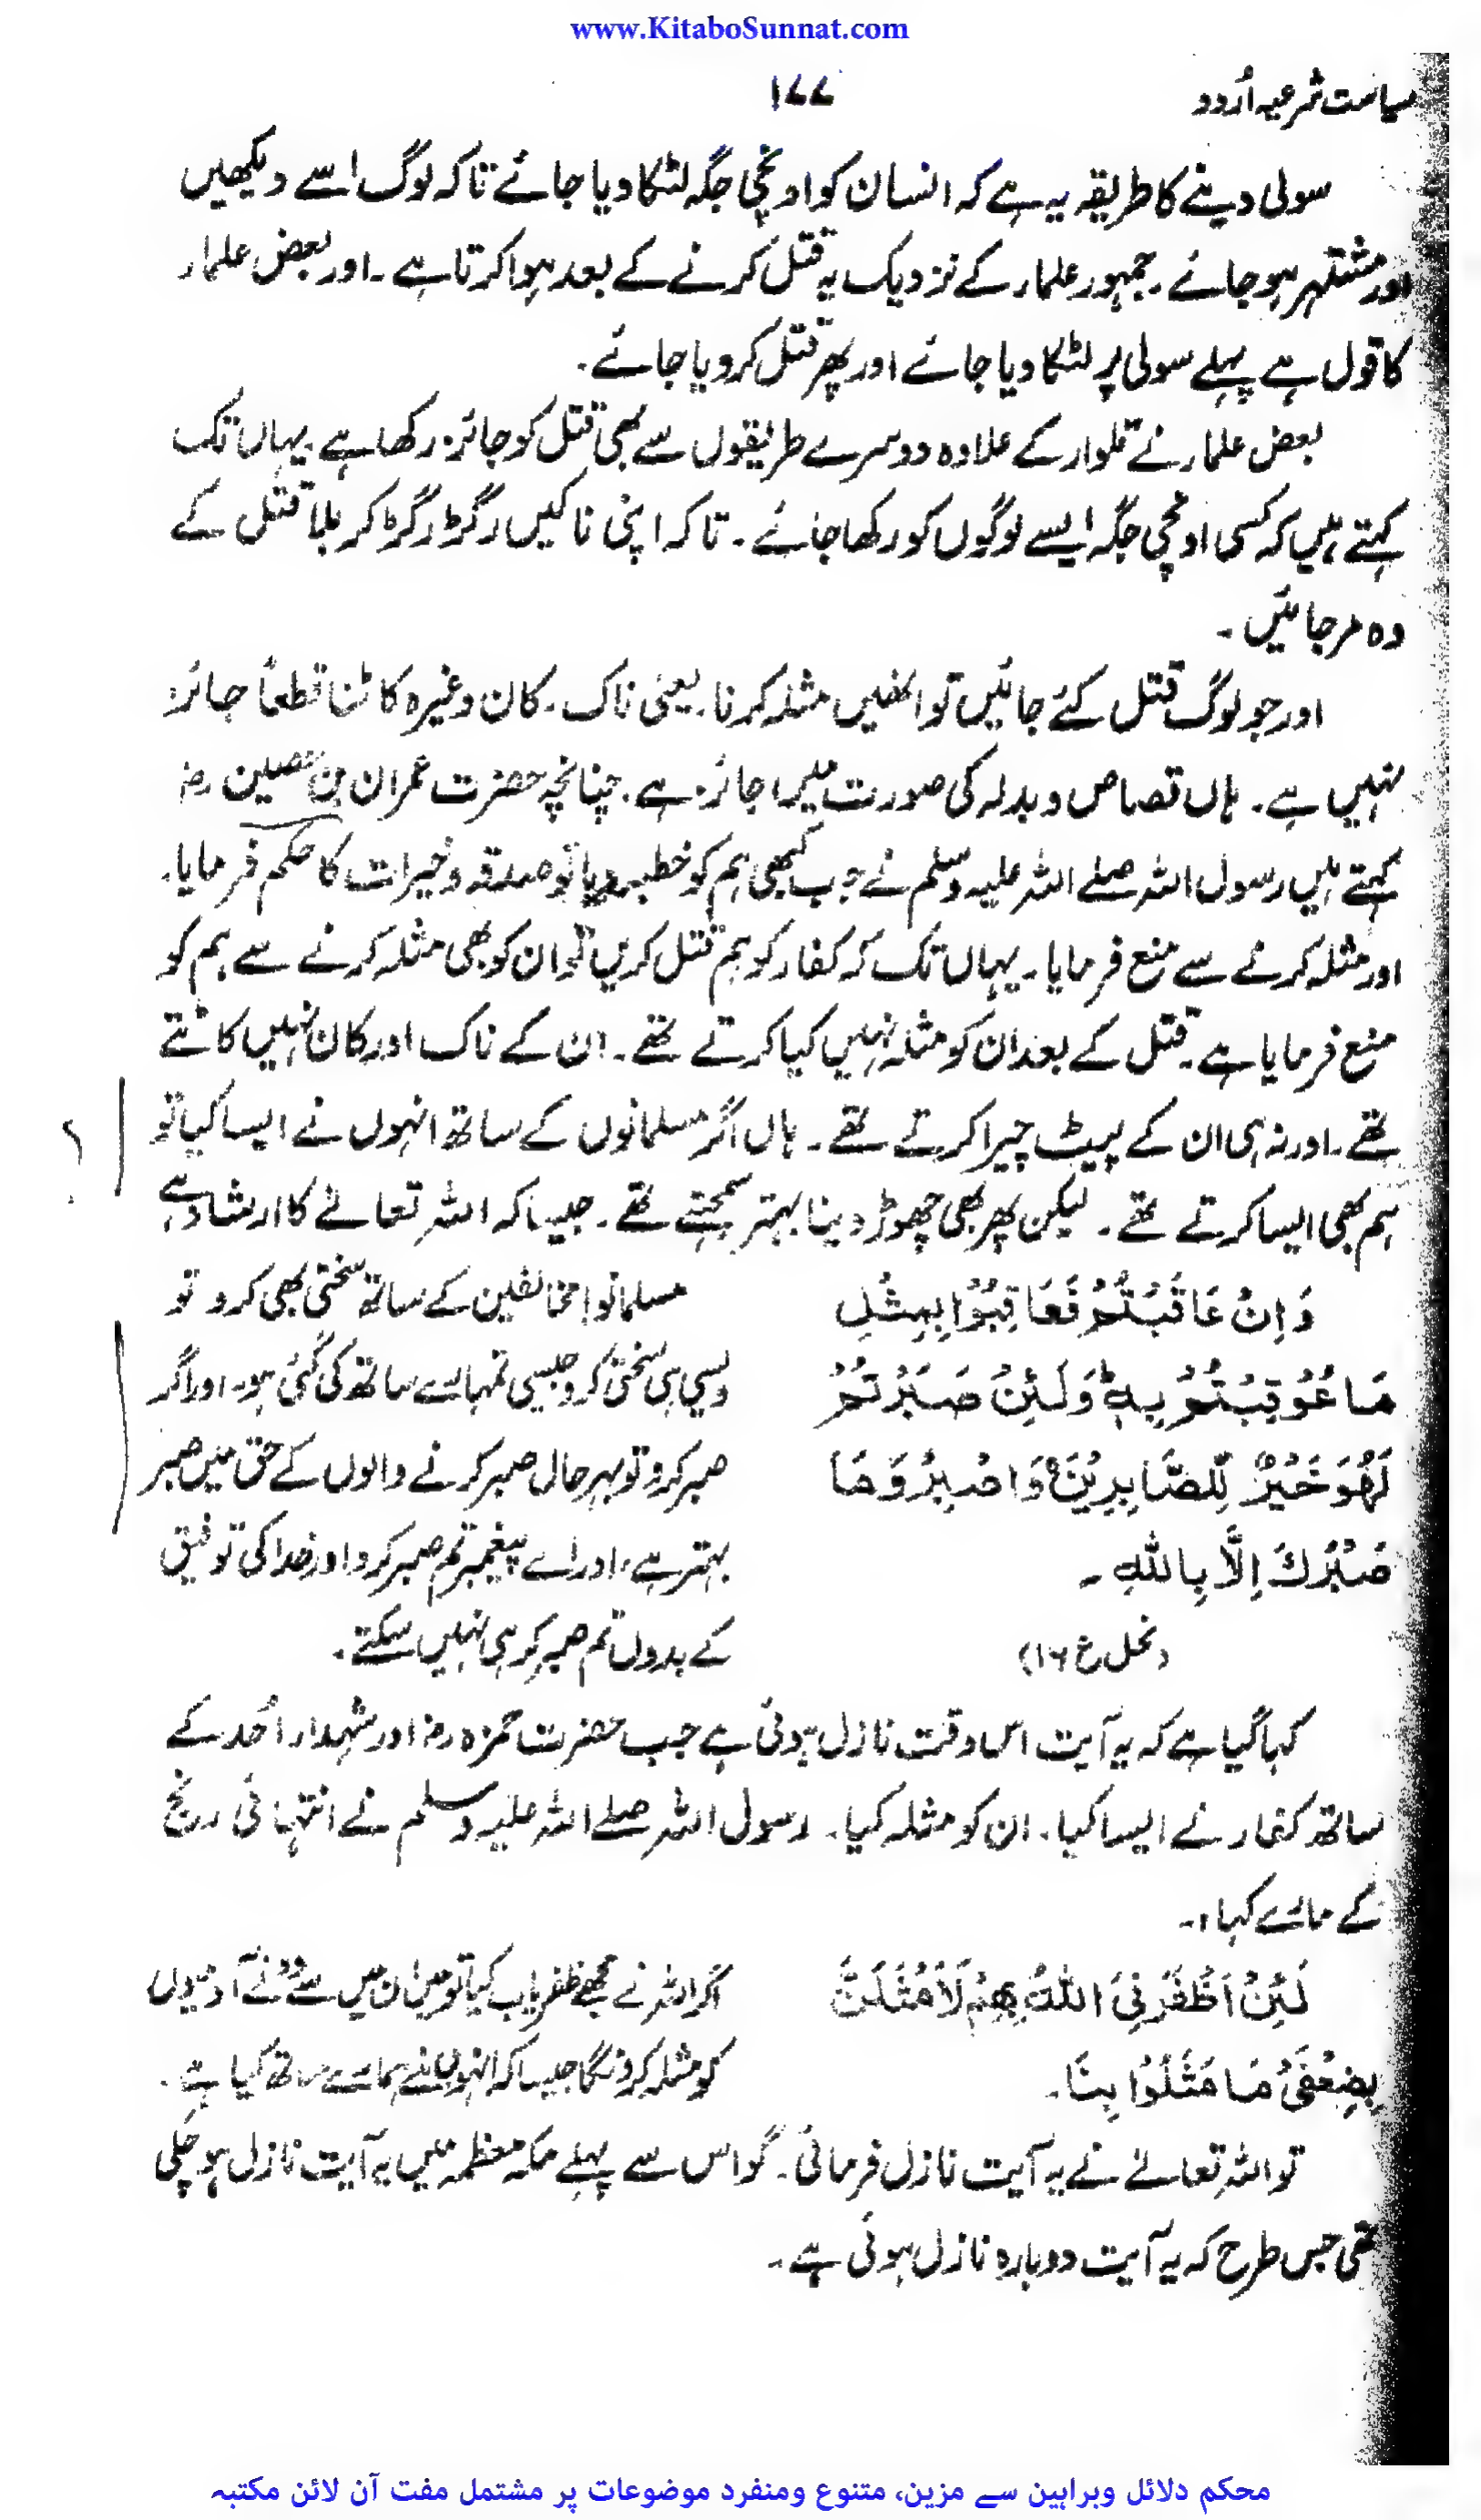 www.KitaboSunnat.com
سیاست شرعیہ اُردو
۱۷۷
سولی دینے کا طریقہ یہ ہے کہ انسان کو اونچی جگہ لٹکا دیا جائے تاکہ لوگ اسے دیکھیں
اور مشتہر ہو جائے۔ جمہور علماء کے نزدیک یہ قتل کرنے کے بعد ہوا کرتا ہے۔ اور بعض علماء
کا قول ہے پہلے سولی پر لٹکا دیا جائے اور پھر قتل کر دیا جائے۔
بعض علماء نے تلوار کے علاوہ دوسرے طریقوں سے بھی قتل کو جائز رکھا ہے۔ یہاں تک
کہتے ہیں کہ کسی اونچی جگہ ایسے لوگوں کو رکھا جائے۔ تاکہ اپنی ناکیں رگڑ رگڑ کر بلا قتل کے
وہ مر جائیں۔
اور جو لوگ قتل کئے جائیں تو انھیں مثلہ کرنا۔ یعنی ناک۔ کان وغیرہ کاٹنا قطعاً جائز
نہیں ہے۔ ہاں قصاص و بدلہ کی صورت میں جائز ہے۔ چنانچہ حضرت عمران بن حصین رض
کہتے ہیں رسول اللہ صلے اللہ علیہ وسلم نے جب کبھی ہم کو خطبہ دیا تو صدقہ و خیرات کا حکم فرمایا۔
اور مثلہ کرنے سے منع فرمایا۔ یہاں تک کہ کفار کو ہم قتل کریں تو ان کو بھی مثلہ کرنے سے ہم کو
منع فرمایا ہے۔ قتل کے بعد ان کو مثلہ نہیں کیا کرتے تھے۔ ان کے ناک اور کان نہیں کاٹتے
تھے۔ اور نہ ہی ان کے پیٹ چیرا کرتے تھے۔ ہاں اگر مسلمانوں کے ساتھ انہوں نے ایسا کیا تو
ہم بھی ایسا کرتے تھے۔ لیکن پھر بھی چھوڑ دینا بہتر سمجھتے تھے۔ جیسا کہ اللہ تعالےٰ کا ارشاد ہے
وَ اِنْ عَاقَبْتُمْ فَعَاقِبُوْا بِمِثْلِ
مَا عُوْقِبْتُمْ بِهٖ وَلَئِنْ صَبَرْتُمْ
لَهُوَ خَيْرٌ لِّلصَّابِرِيْنَ وَاصْبِرْ وَمَا
صَبْرُكَ اِلَّا بِاللهِ ۔
(نحل ع ۱۶)
مسلمانو! مخالفین کے ساتھ سختی بھی کرو تو
ویسی ہی سختی کرو جیسی تمہارے ساتھ کی گئی ہو۔ اور اگر
صبر کرو تو بہر حال صبر کرنے والوں کے حق میں صبر
بہتر ہے، اور اے پیغمبر تم صبر کرو اور خدا کی توفیق
کے بدوں تم صبر کر ہی نہیں سکتے۔
کہا گیا ہے کہ یہ آیت اس وقت نازل ہوئی ہے جب حضرت حمزہ رض اور شہداء اُحد کے
ساتھ کفار نے ایسا کیا۔ ان کو مثلہ کیا۔ رسول اللہ صلے اللہ علیہ وسلم نے انتہائی رنج
کے مارے کہا:۔
لَئِنْ اَظْفَرَنِىَ اللهُ بِهِمْ لَاُمَثِّلَنَّ
بِضِعْفَىْ مَا مَثَّلُوْا بِنَا۔
اگر اللہ نے مجھے ظفر یاب کیا تو میں ان میں سے دُونے آدمیوں
کو مثلہ کرونگا جیسا کہ انہوں نے ہمارے ساتھ کیا ہے۔
تو اللہ تعالےٰ نے یہ آیت نازل فرمائی۔ گو اس سے پہلے مکہ معظمہ میں یہ آیت نازل ہو چکی
تھی جس طرح کہ یہ آیت دوبارہ نازل ہوئی ہے۔
محکم دلائل وبراہین سے مزین، متنوع ومنفرد موضوعات پر مشتمل مفت آن لائن مکتبہ